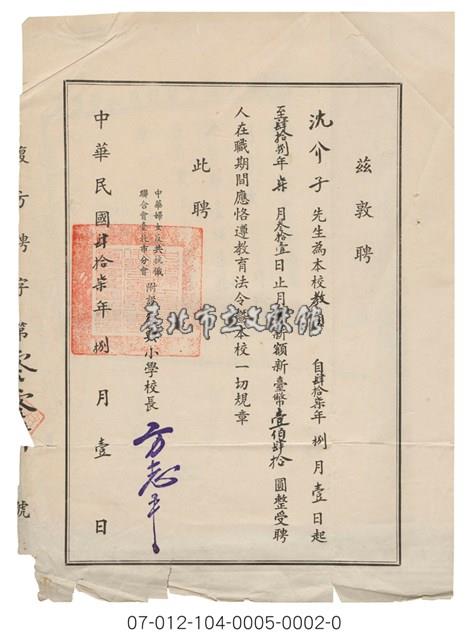 茲敦聘
沈介子先生為本校教員自肆拾柒年捌月壹日起
至肆拾捌年柒月叁拾壹日止月薪額新臺幣壹佰肆拾圓整受聘
人在職期間應恪遵教育法令暨本校一切規章
此聘
中華婦女反共抗俄
聯合會臺北市分會
附設小學校長
方志平
中華民國肆拾柒年捌月壹日
復方聘字第號
臺北市立文獻館
07-012-104-0005-0002-0